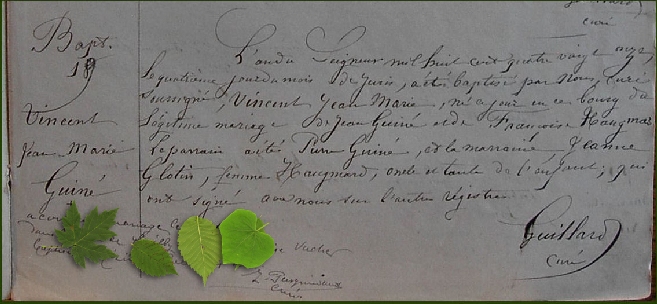 curé
Bapt.
19
Vincent
Jean Marie
Guiné
L'an du Seigneur mil huit cent quatre vingt onze,
le quatrième jour du mois de Juin, a été baptisé par Nous, Curé
soussigné, Vincent Jean Marie, né ce jour en ce bourg du
légitime mariage de Jean Guiné et de Françoise Haugmar
Le parrain a été Pierre Guiné, et la marraine, Jeanne
Glotin, femme Haugmard, oncle et tante de l'enfant; qui
ont signé avec nous sur l'autre registre
Guillard
curé
a contracté mariage
dans
curé